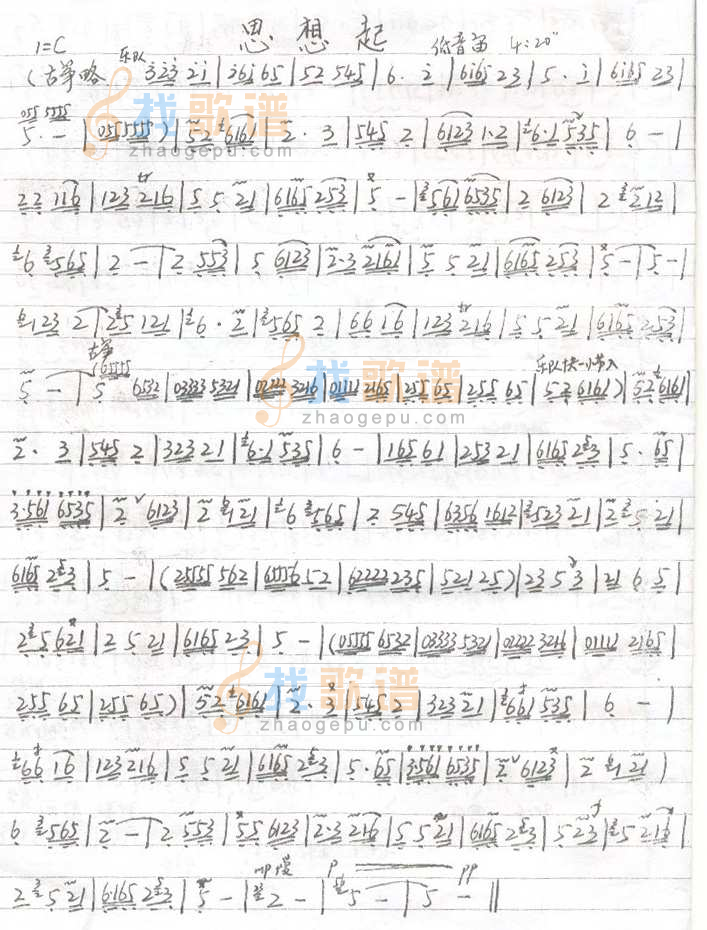 思想起 低音笛 4:20"
1=C 乐队
(古筝略 323 21 | 261 65 | 52 545 | 6· 2 | 6165 23 | 5· 1 | 6165 23 |
055 5555
5· - | 055 5555) | 52 6161 | 2· 3 | 545 2 | 6123 1·2 | 6·1 535 | 6 - |
22 116 | 123 216 | 5 5 21 | 6165 253 | 5 - | 561 6535 | 2 6123 | 2 212 |
6 565 | 2 - | 2 553 | 5 6123 | 2·3 2161 | 5 5 21 | 6165 253 | 5 - | 5 - |
123 2 | 25 121 | 6· 2 | 565 2 | 66 16 | 123 216 | 5 5 21 | 6165 253 |
古筝
5 - | 5 (65555 6532 | 03333 5321 | 02222 3216 | 01111 2165 | 255 65 | 255 65 | 52 6161) | 52 6161 |
2· 3 | 545 2 | 323 21 | 6·1 535 | 6 - | 165 61 | 253 21 | 6165 253 | 5· 65 |
3·561 6535 | 2 6123 | 2 21 | 6 565 | 2 545 | 6356 1612 | 523 21 | 2 5 21 |
6165 253 | 5 - | (25555 562 | 65556 52 | 62222 235 | 521 25) | 23 5 3 | 21 6 5 |
2 5 621 | 2 5 21 | 6165 23 | 5 - | (05555 6532 | 03333 5321 | 02222 3216 | 01111 2165 |
255 65 | 255 65) | 52 6161 | 2· 3 | 545 2 | 323 21 | 661 535 | 6 - |
66 16 | 123 216 | 5 5 21 | 6165 253 | 5· 65 | 3·561 6535 | 2 6123 | 2 21 |
6 565 | 2 - | 2 553 | 55 6123 | 2·3 216 | 5 5 21 | 6165 253 | 5 23 | 5 216 |
mp 慢 p pp
2 5 21 | 6·165 253 | 5 - | 2 - | 5 - | 5 - ||
找歌谱
zhaogepu.com
找歌谱
zhaogepu.com
找歌谱
zhaogepu.com